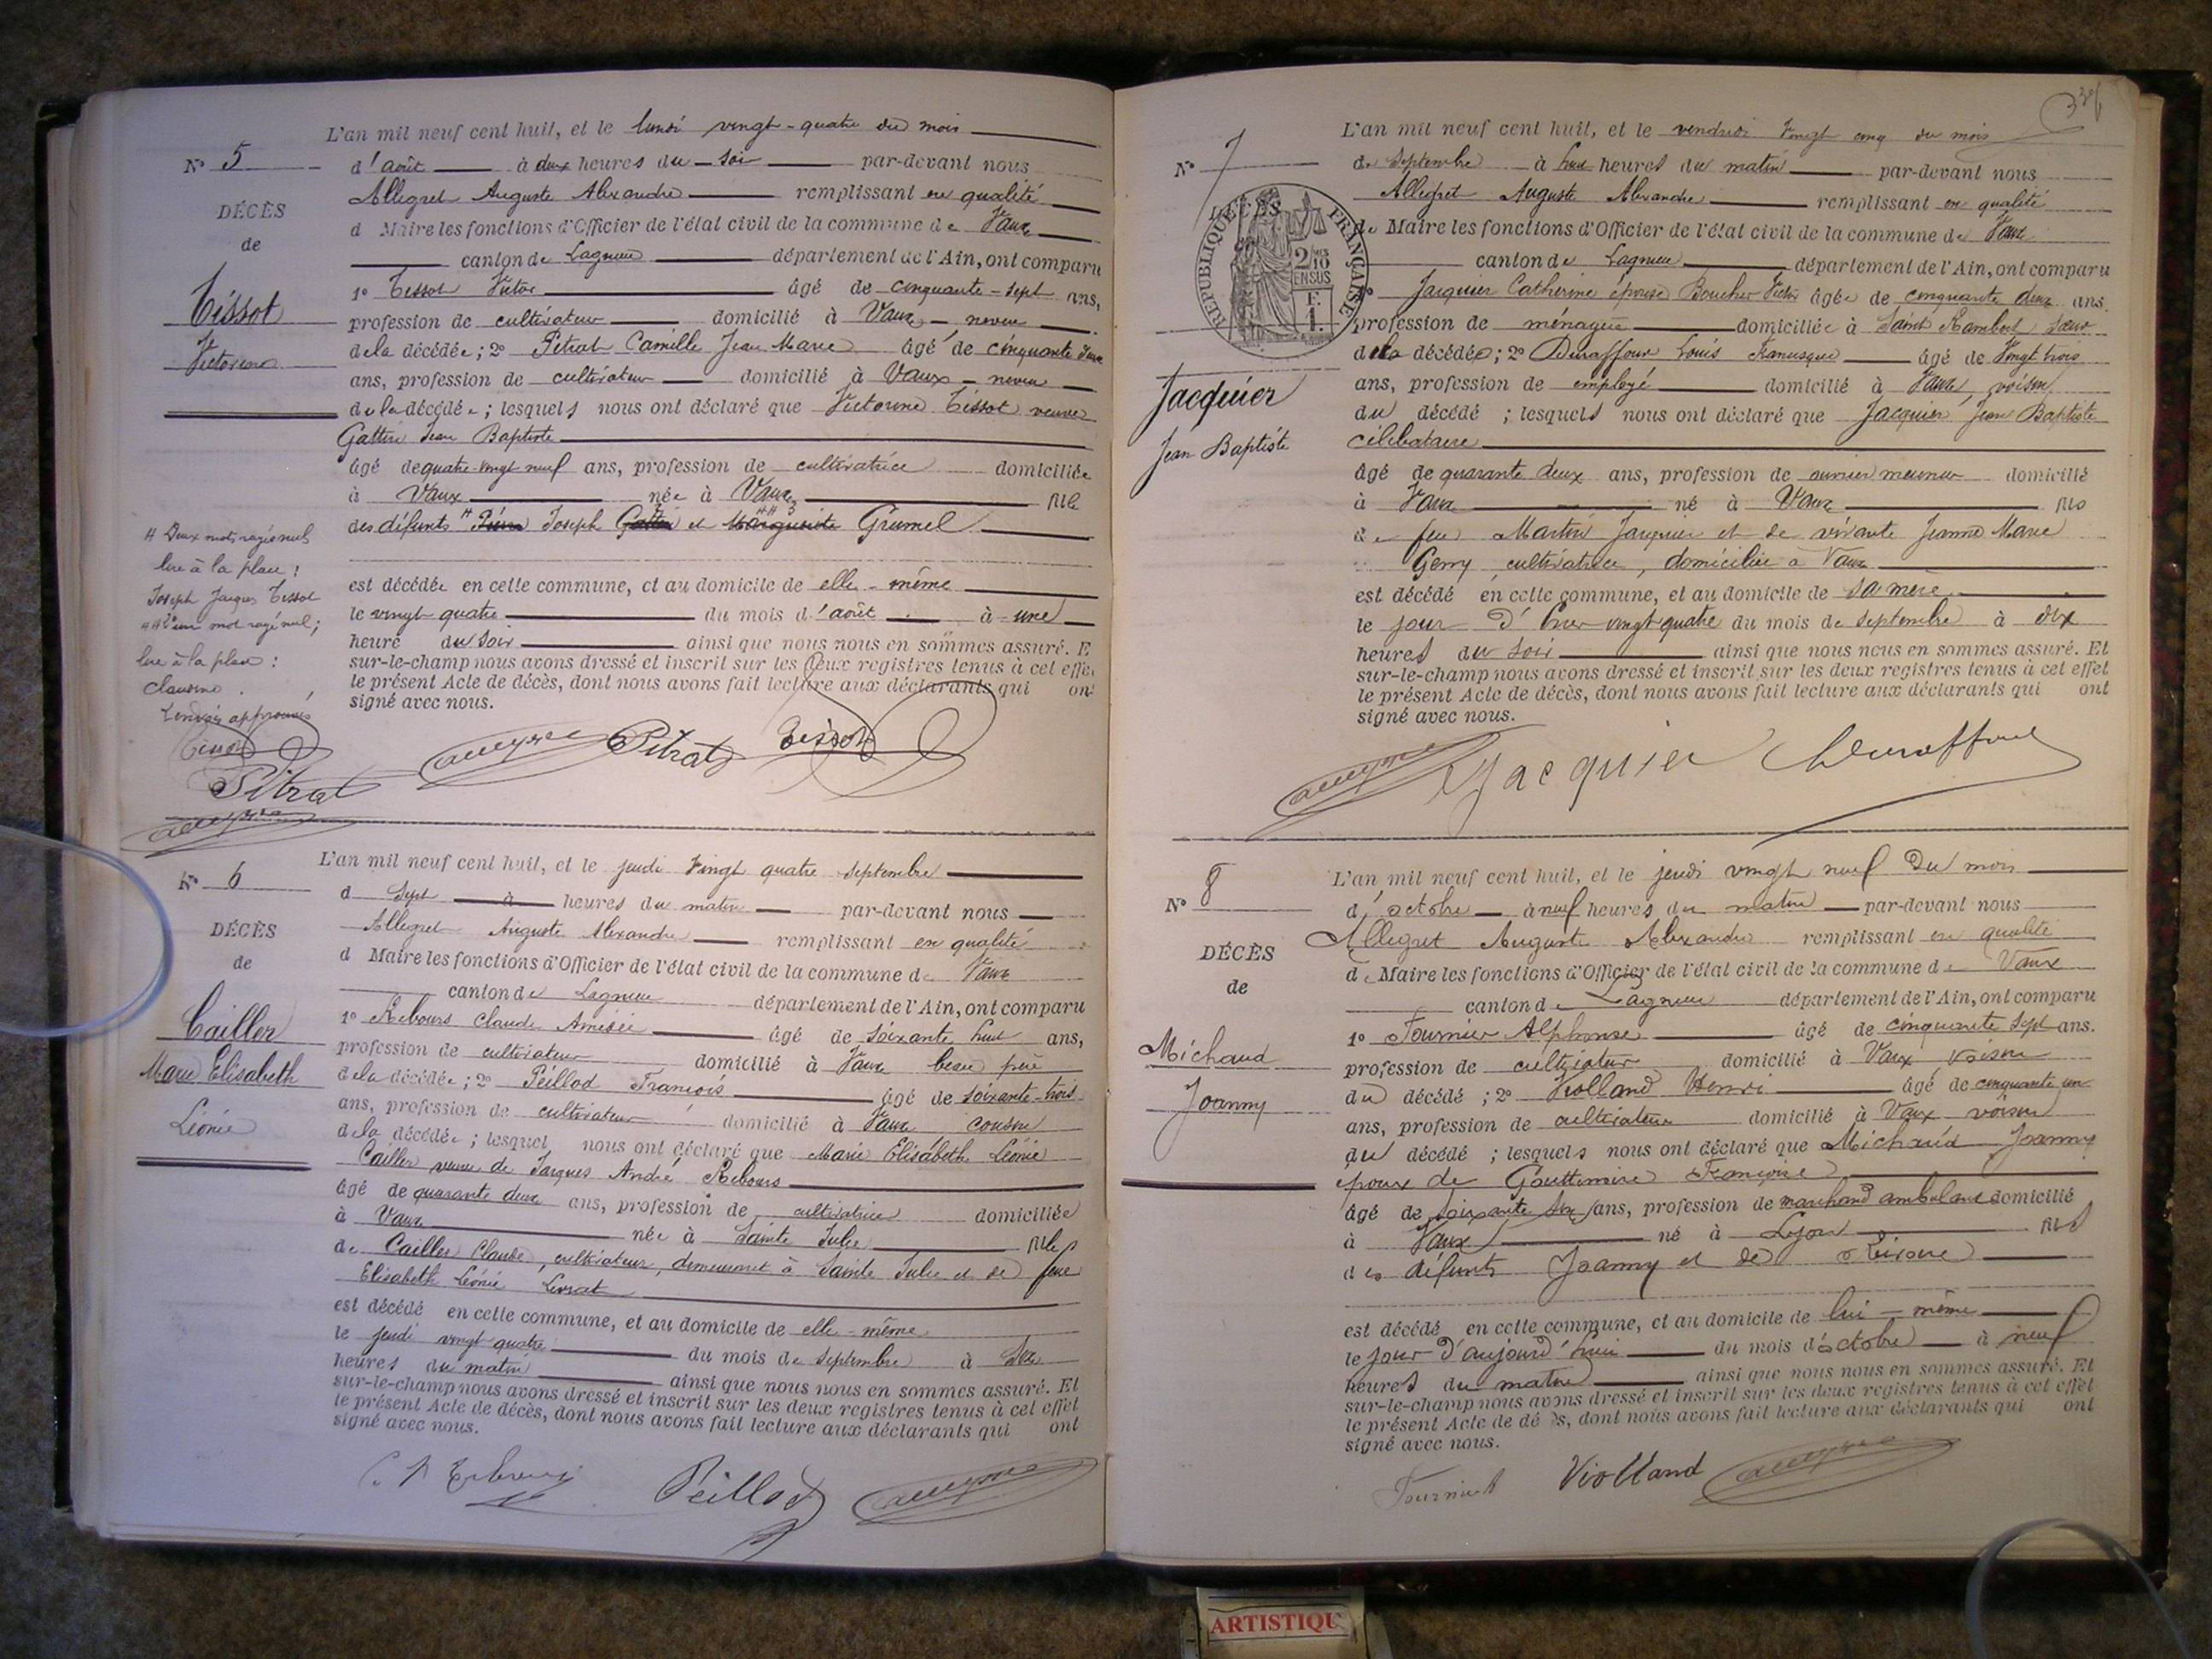 L'an mil neuf cent huit, et le lundi vingt-quatre du mois
N° 5
d'août à deux heures du soir par-devant nous
Allegret Auguste Alexandre remplissant en qualité
DÉCÈS
d Maire les fonctions d'Officier de l'état civil de la commune de Vaux
de
canton de Lagnieu département de l'Ain, ont comparu
Tissot
1° Tissot Victor âgé de cinquante-sept ans,
profession de cultivateur domicilié à Vaux - neveu
Victorine
de la décédée; 2° Pitrat Camille Jean Marie âgé de cinquante
ans, profession de cultivateur domicilié à Vaux - neveu
de la décédée; lesquels nous ont déclaré que Victorine Tissot veuve
Gattin Jean Baptiste
âgé de quatre-vingt neuf ans, profession de cultivatrice domiciliée
à Vaux née à Vaux fille
des défunts Pierre Joseph et Marguerite Grumel
# Deux mots rayés nuls
lire à la place :
Joseph Jacques Tissot
mot rayé nul;
lire à la place :
Claudine
Renvois approuvés
est décédée en cette commune, et au domicile de elle-même
le vingt-quatre du mois d'août à une
heure du soir ainsi que nous nous en sommes assuré. E
sur-le-champ nous avons dressé et inscrit sur les deux registres tenus à cet effe
le présent Acte de décès, dont nous avons fait lecture aux déclarants qui ont
signé avec nous.
Tissot
Pitrat
Pitrat Tissot
L'an mil neuf cent huit, et le jeudi vingt quatre septembre
N° 6
d Sept à heures du matin par-devant nous
Allegret Auguste Alexandre remplissant en qualité
DÉCÈS
d Maire les fonctions d'Officier de l'état civil de la commune de Vaux
de
canton de Lagnieu département de l'Ain, ont comparu
Cailler
1° Rebours Claude Amisée âgé de soixante huit ans,
profession de cultivateur domicilié à Vaux beau père
Marie Elisabeth
de la décédée; 2° Peillod François âgé de soixante-trois
ans, profession de cultivateur domicilié à Vaux cousin
Léonie
de la décédée; lesquel nous ont déclaré que Marie Elisabeth Léonie
Cailler veuve de Jacques André Rebours
âgé de quarante deux ans, profession de cultivatrice domiciliée
à Vaux née à Sainte Julie fille
de Cailler Claude, cultivateur, demeurant à Sainte Julie et de feue
Elisabeth Léonie
est décédé en cette commune, et au domicile de elle-même
le jeudi vingt-quatre du mois de septembre à
heures du matin ainsi que nous nous en sommes assuré. Et
sur-le-champ nous avons dressé et inscrit sur les deux registres tenus à cet effet
le présent Acte de décès, dont nous avons fait lecture aux déclarants qui ont
signé avec nous.
Peillod
L'an mil neuf cent huit, et le vendredi vingt cinq du mois
N° 7
de septembre à huit heures du matin par-devant nous
Allegret Auguste Alexandre remplissant en qualité
de Maire les fonctions d'Officier de l'état civil de la commune de Vaux
RÉPUBLIQUE FRANÇAISE
2/10 EN SUS
canton de Lagnieu département de l'Ain, ont comparu
Jacquier Catherine épouse Boucher Victor âgée de cinquante deux ans.
profession de ménagère domiciliée à Saint Rambert, soeur
de la décédée; 2° Duraffour Louis Franisque âgé de vingt trois
Jacquier
ans, profession de employé domicilié à Vaux, voisin
du décédé; lesquels nous ont déclaré que Jacquier Jean Baptiste
Jean Baptiste
célibataire
âgé de quarante deux ans, profession de ouvrier meunier domicilié
à Vaux né à Vaux fils
de feu Martin Jacquier et de vivante Jeanne Marie
Genry, cultivatrice, domiciliée à Vaux
est décédé en cette commune, et au domicile de sa mère
le jour d'hier vingt quatre du mois de septembre à dix
heures du soir ainsi que nous nous en sommes assuré. Et
sur-le-champ nous avons dressé et inscrit sur les deux registres tenus à cet effet
le présent Acte de décès, dont nous avons fait lecture aux déclarants qui ont
signé avec nous.
Jacquier Duraffour
L'an mil neuf cent huit, et le jeudi vingt neuf du mois
N° 8
d'octobre à neuf heures du matin par-devant nous
Allegret Auguste Alexandre remplissant en qualité
DÉCÈS
de Maire les fonctions d'Officier de l'état civil de la commune de Vaux
de
canton de Lagnieu département de l'Ain, ont comparu
1° Fournier Alphonse âgé de cinquante sept ans.
Michaud
profession de cultivateur domicilié à Vaux, voisin
Joanny
du décédé; 2° Violland Henri âgé de cinquante un
ans, profession de cultivateur domicilié à Vaux voisin
du décédé; lesquels nous ont déclaré que Michaud Joanny
époux de Françoise
âgé de soixante ans, profession de marchand ambulant domicilié
à Vaux né à Lyon fils
des défunts Joanny et de
est décédé en cette commune, et au domicile de lui-même
le jour d'aujourd'hui du mois d'octobre à neuf
heures du matin ainsi que nous nous en sommes assuré. Et
sur-le-champ nous avons dressé et inscrit sur les deux registres tenus à cet effet
le présent Acte de dé s, dont nous avons fait lecture aux déclarants qui ont
signé avec nous.
Fournier Violland
ARTISTIQU